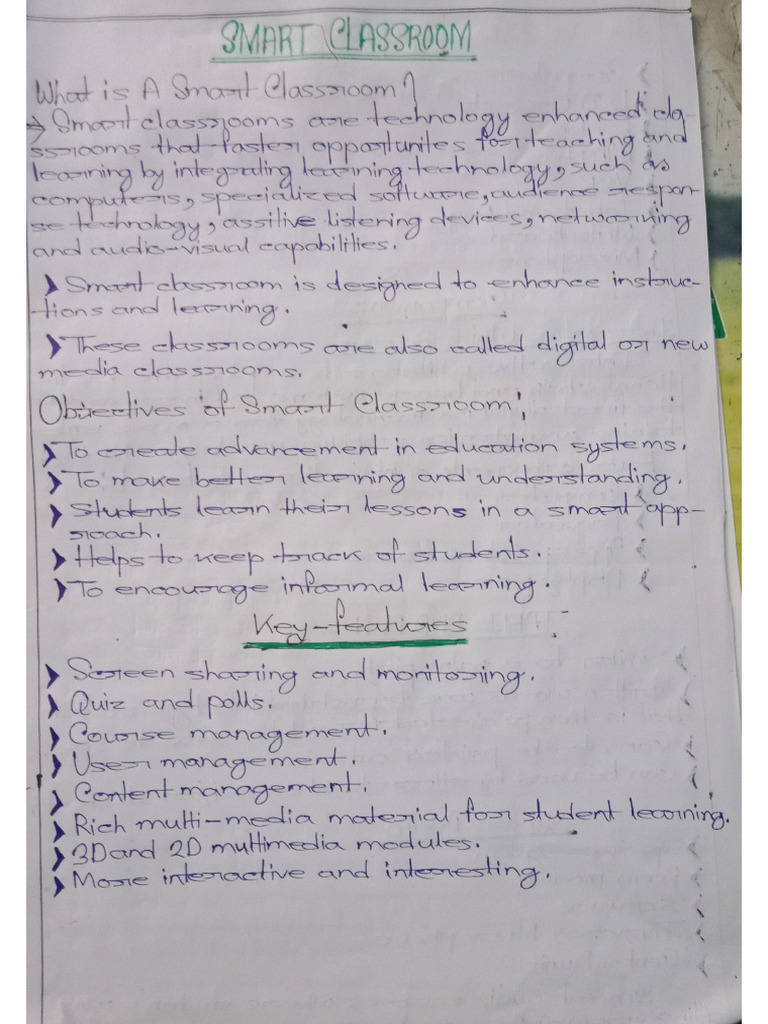 SMART CLASSROOM
What is A Smart Classroom?
→ Smart classrooms are technology enhanced cla-
ssrooms that faster opportunites for teaching and
learning by integrating learning technology, such as
computers, specialized software, audience respon-
se technology, assitive listening devices, networking
and audio-visual capabilities.
❯ Smart classroom is designed to enhance instruc-
tions and learning.
❯ These classrooms are also called digital or new
media classrooms.
Objectives of Smart Classroom:
❯ To create advancement in education systems.
❯ To make better learning and understanding.
❯ Students learn their lessons in a smart app-
roach.
❯ Helps to keep track of students.
❯ To encourage informal learning.
Key-features
❯ Screen sharing and monitoring.
❯ Quiz and polls.
❯ Course management.
❯ User management.
❯ Content management.
❯ Rich multi-media material for student learning.
❯ 3D and 2D multimedia modules.
❯ More interactive and interesting.